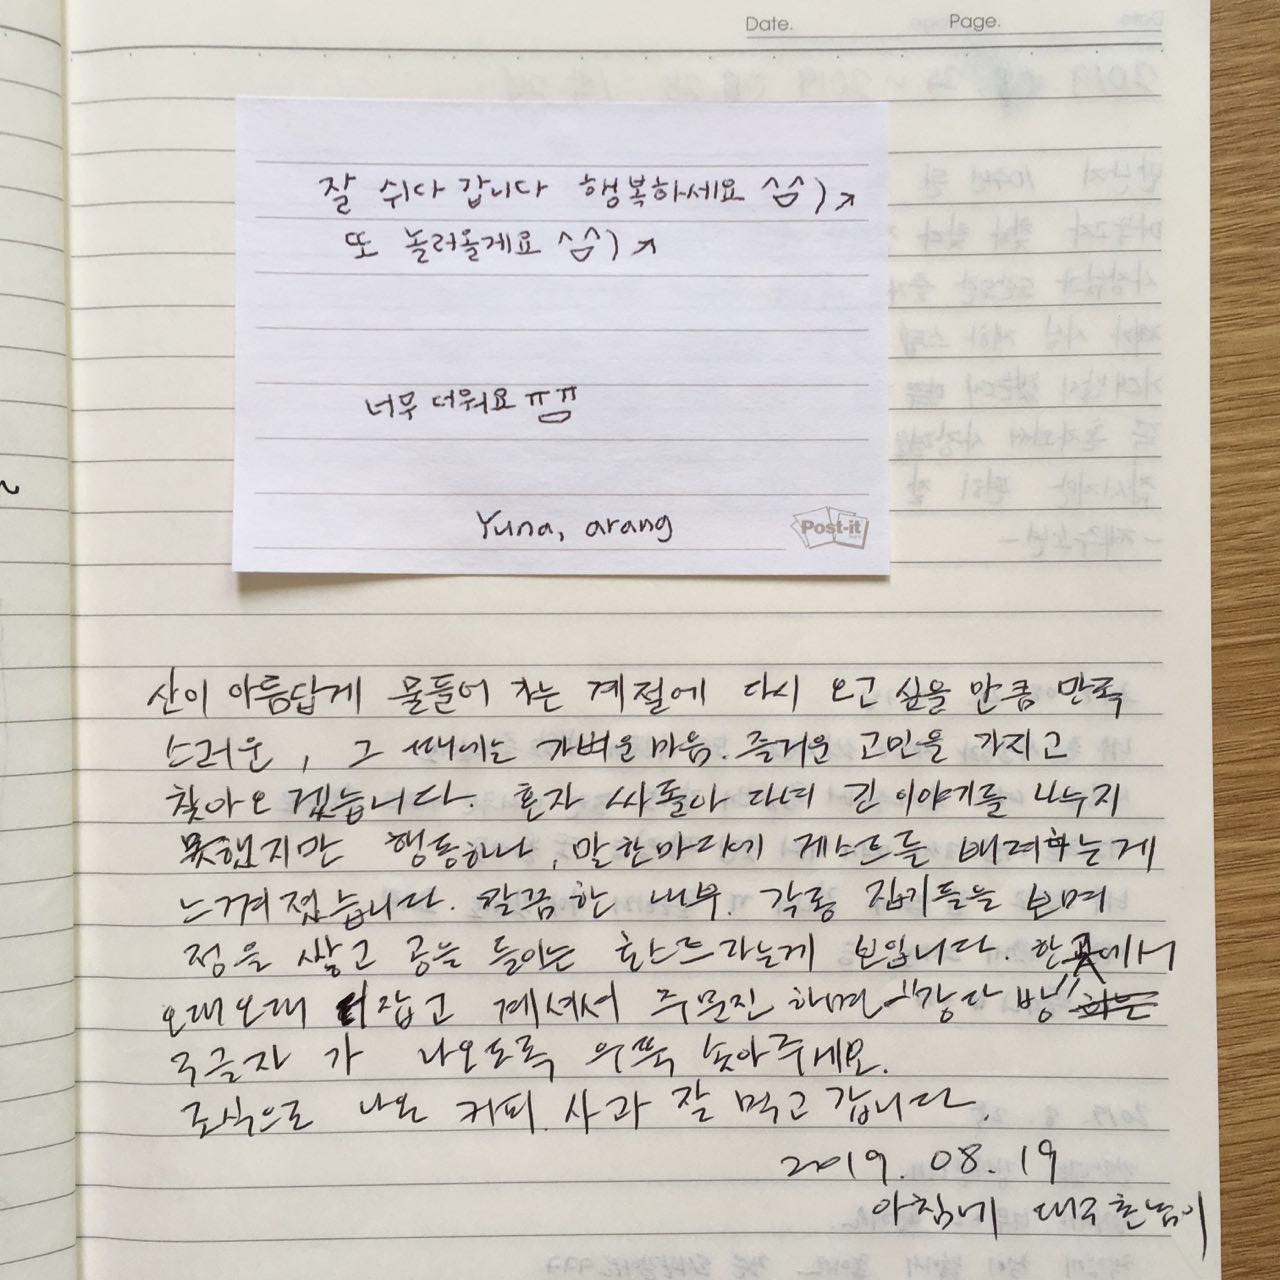 Date. Page.
잘 쉬다 갑니다 행복하세요 ^スス^)↗
또 놀러올게요 ^スス^)↗
너무 더워요 ㅠㅠ
Yuna, arang
Post-it
산이 아름답게 물들어 가는 계절에 다시 오고 싶을 만큼 만족
스러운, 그 때에는 가벼운 마음. 즐거운 고민을 가지고
찾아오겠습니다. 혼자 싸돌아 다녀 긴 이야기를 나누지
못했지만 행동하나, 말한마디에 게스트를 배려하는게
느껴졌습니다. 깔끔한 내부. 각종 집기들을 보며
정을 쌓고 공을 들이는 호스트라는게 보입니다. 한곳에서
오래오래 터잡고 계셔서 주문진 하면 "강다방"
3글자가 나오도록 우뚝 솟아주세요.
조식으로 나온 커피. 사과 잘 먹고 갑니다.
2019. 08. 19
아침에